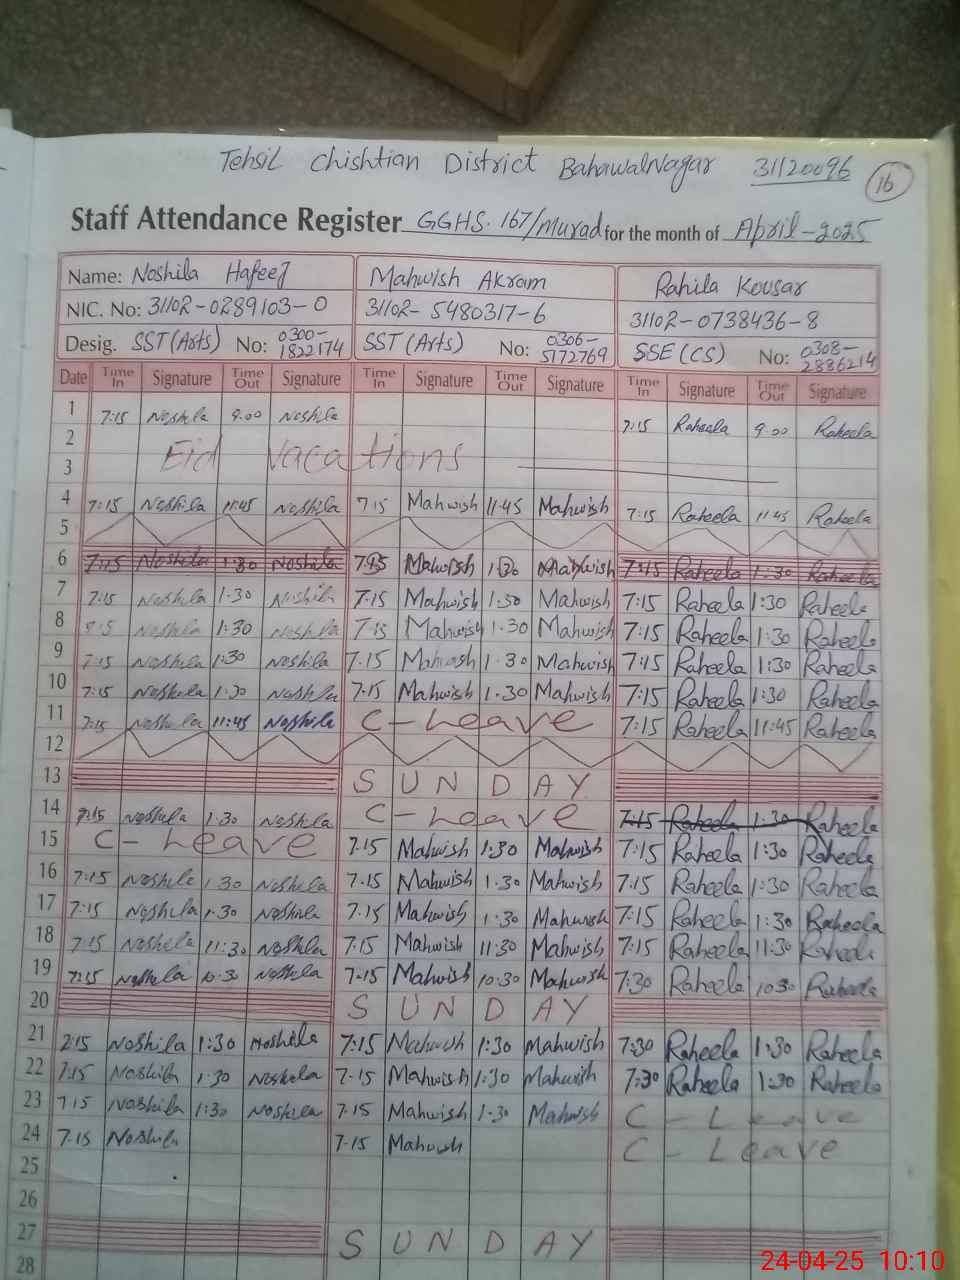 Tehsil Chishtian District BahawalNagar 31120096 16
Staff Attendance Register GGHS. 167/Murad for the month of April-2025
Name: Noshila Hafeez Mahwish Akram Rahila Kousar
NIC. No: 31102-0289103-0 31102-5480317-6 31102-0738436-8
Desig. SST (Arts) No: 0300-1822174 SST (Arts) No: 0306-5172769 SSE (CS) No: 0308-2886214
Date Time In Signature Time Out Signature Time In Signature Time Out Signature Time In Signature Time Out Signature
1 7:15 Noshila 9.00 Noshila 7:15 Raheela 9.00 Raheela
2 Eid Vacations
3
4 7:15 Noshila 11:45 Noshila 7 15 Mahwish 11.45 Mahwish 7:15 Raheela 11:45 Raheela
5
6 7:15 Noshila 1:30 Noshila Mahwish 1:30 Mahwish 7:15 Raheela 1:30 Raheela
7 7:15 Noshila 1.30 Noshila 7.15 Mahwish 1.30 Mahwish 7:15 Raheela 1:30 Raheela
8 Noshila 1:30 Noshila 7.15 Mahwish 1.30 Mahwish 7:15 Raheela 1:30 Raheela
9 7:15 Noshila 1:30 Noshila 7.15 Mahwish 1.30 Mahwish 7:15 Raheela 1:30 Raheela
10 7:15 Noshila 1:30 Noshila 7.15 Mahwish 1.30 Mahwish 7:15 Raheela 1:30 Raheela
11 7:15 Noshila 11:45 Noshila C-Leave 7:15 Raheela 11:45 Raheela
12
13 SUNDAY
14 7:15 Noshila 1.30 Noshila C-Leave 7:15 Raheela 1:30 Raheela
15 C-Leave 7.15 Mahwish 1:30 Mahwish 7:15 Raheela 1:30 Raheela
16 7:15 Noshila 1.30 Noshila 7.15 Mahwish 1.30 Mahwish 7:15 Raheela 1:30 Raheela
17 7:15 Noshila 1.30 Noshila 7.15 Mahwish 1.30 Mahwish 7:15 Raheela 1:30 Raheela
18 7:15 Noshila 11:30 Noshila 7:15 Mahwish 11:30 Mahwish 7:15 Raheela 11:30 Raheela
19 7:15 Noshila 10.30 Noshila 7-15 Mahwish 10:30 Mahwish 7:30 Raheela 1030 Raheela
20 SUNDAY
21 7:15 Noshila 1:30 Noshila 7:15 Mahwish 1:30 Mahwish 7:30 Raheela 1:30 Raheela
22 7:15 Noshila 1.30 Noshila 7-15 Mahwish 1:30 Mahwish 7:30 Raheela 1:30 Raheela
23 7 15 Noshila 1:30 Noshila 7-15 Mahwish 1.30 Mahwish C-Leave
24 7-15 Noshila 7-15 Mahwish C-Leave
25
26
27 SUNDAY
28
24-04-25 10:10